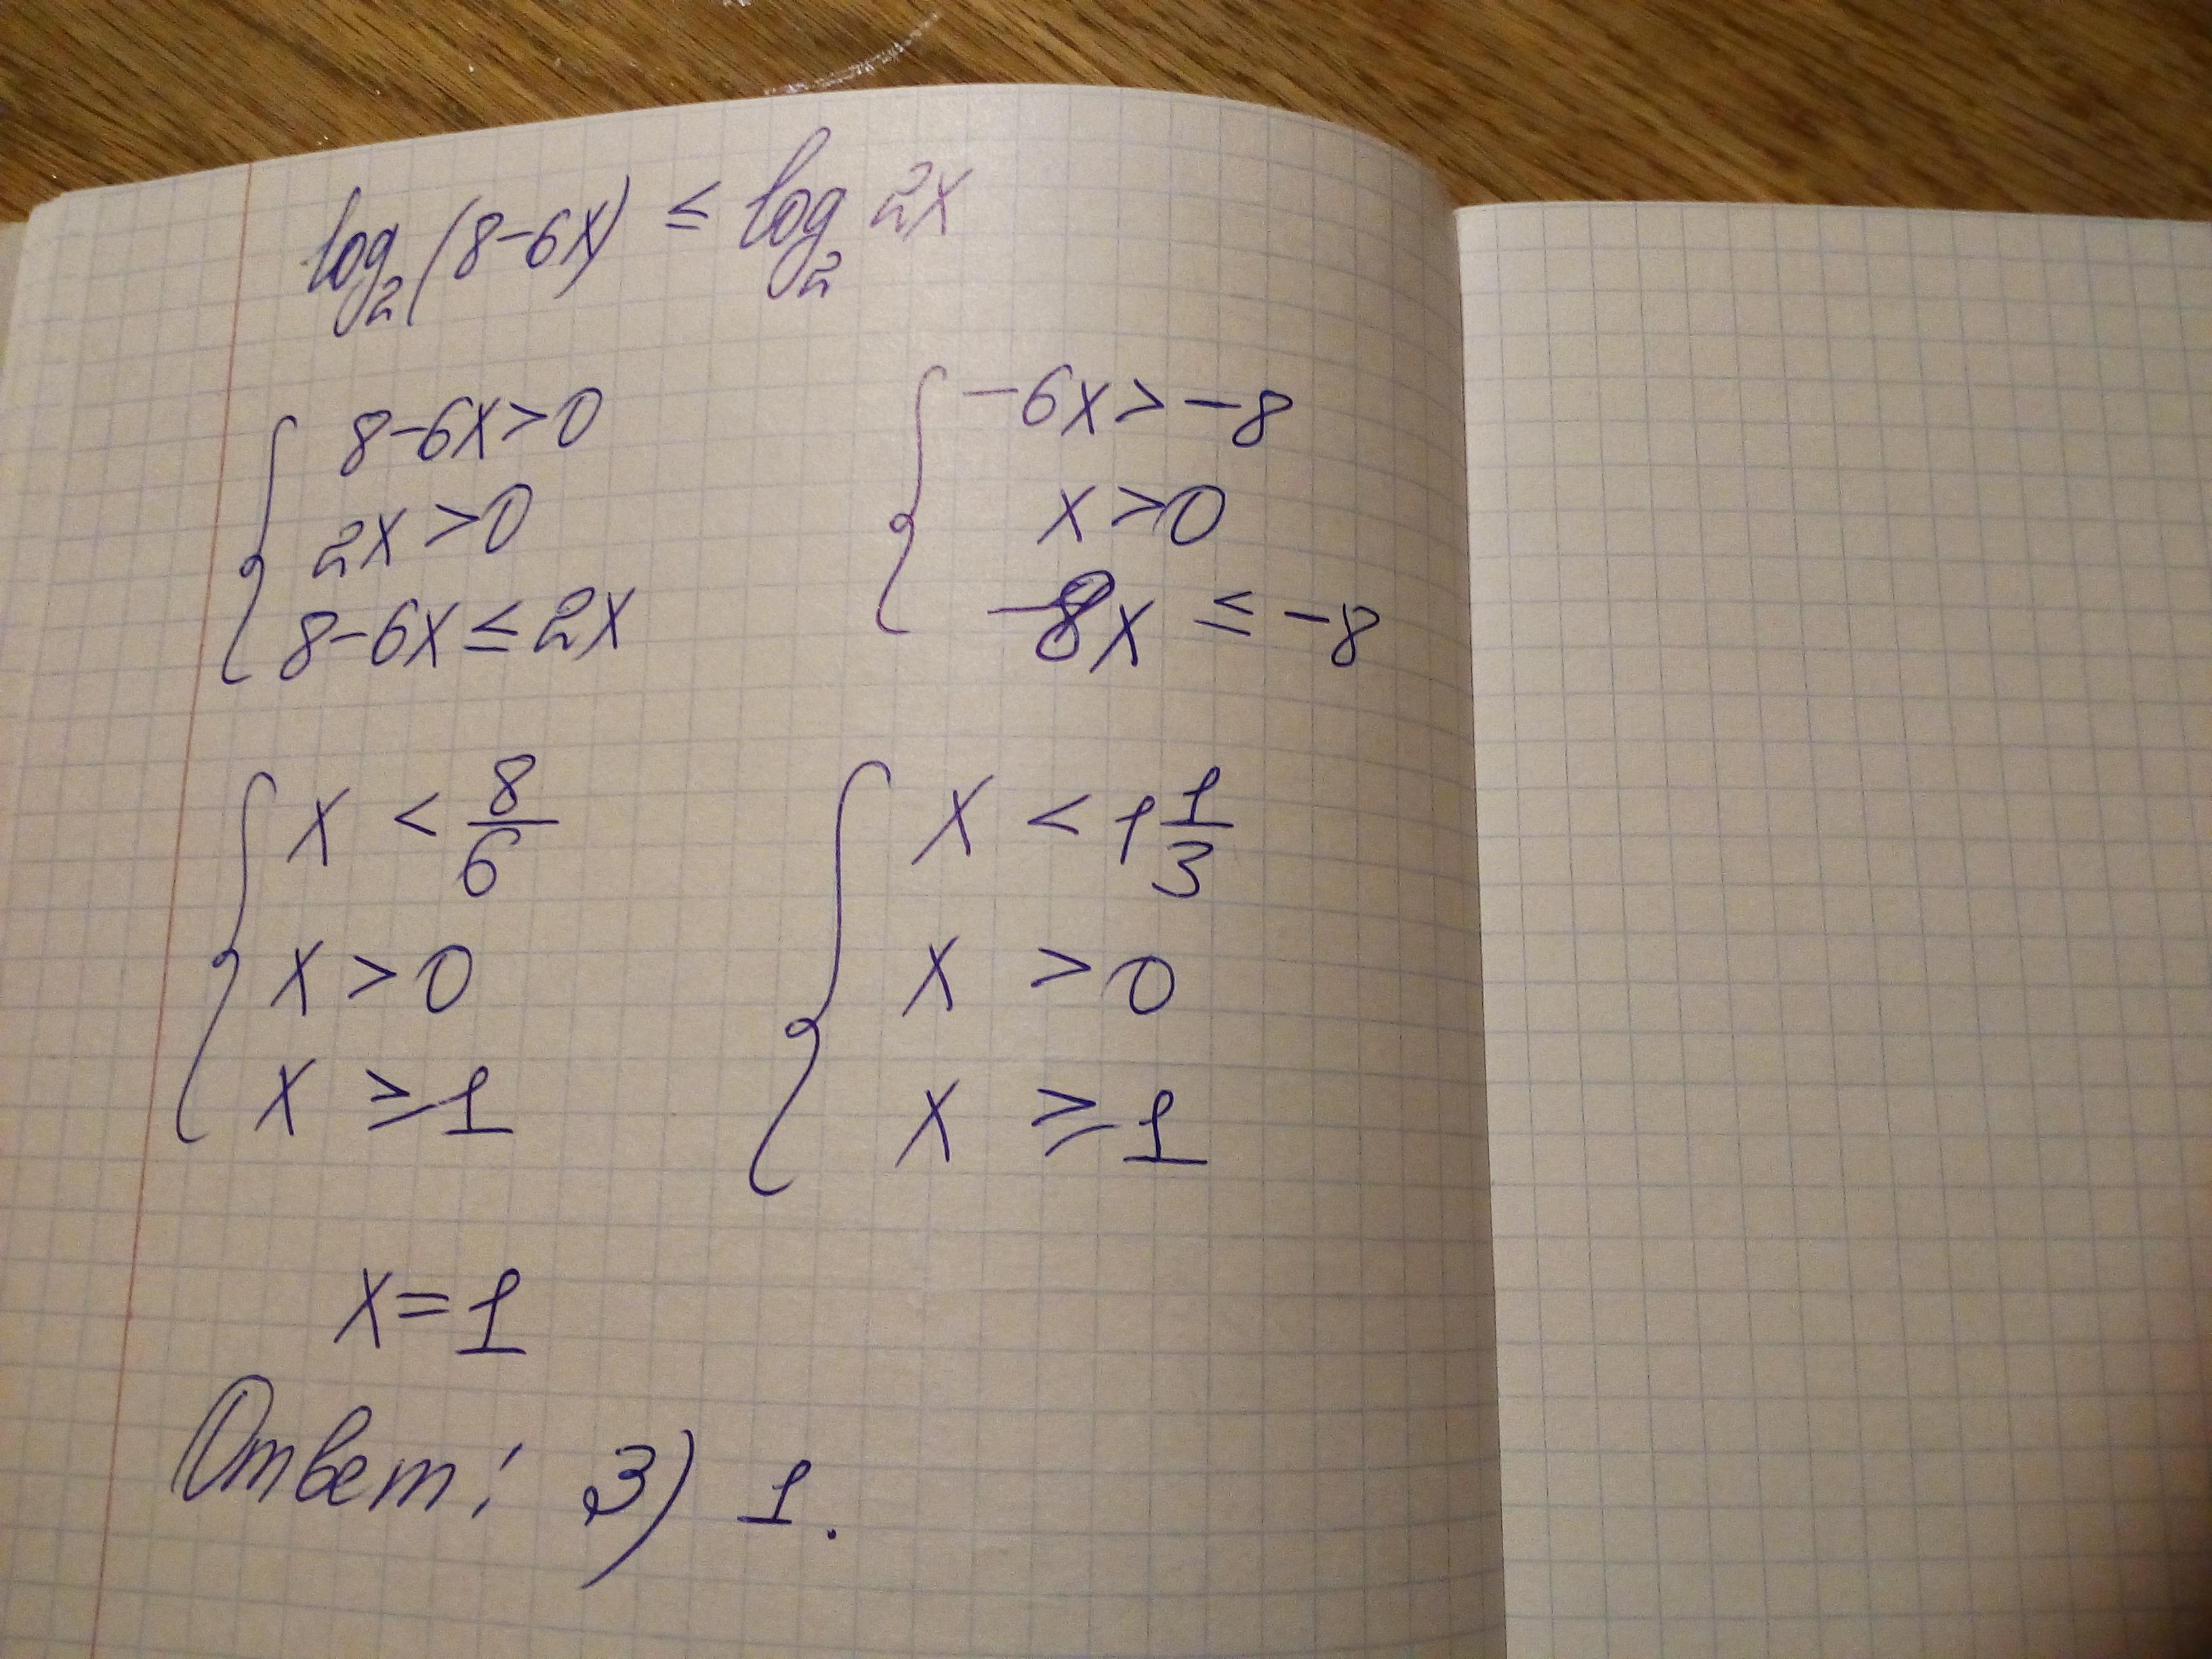 log₂(8-6x) ≤ log₂ 2x
{ 8-6x>0
2x>0
8-6x≤2x
{ -6x>-8
x>0
-8x ≤ -8
{ x < 8/6
x > 0
x ≥ 1
{ x < 1 1/3
x > 0
x ≥ 1
x=1
Ответ: 3) 1.